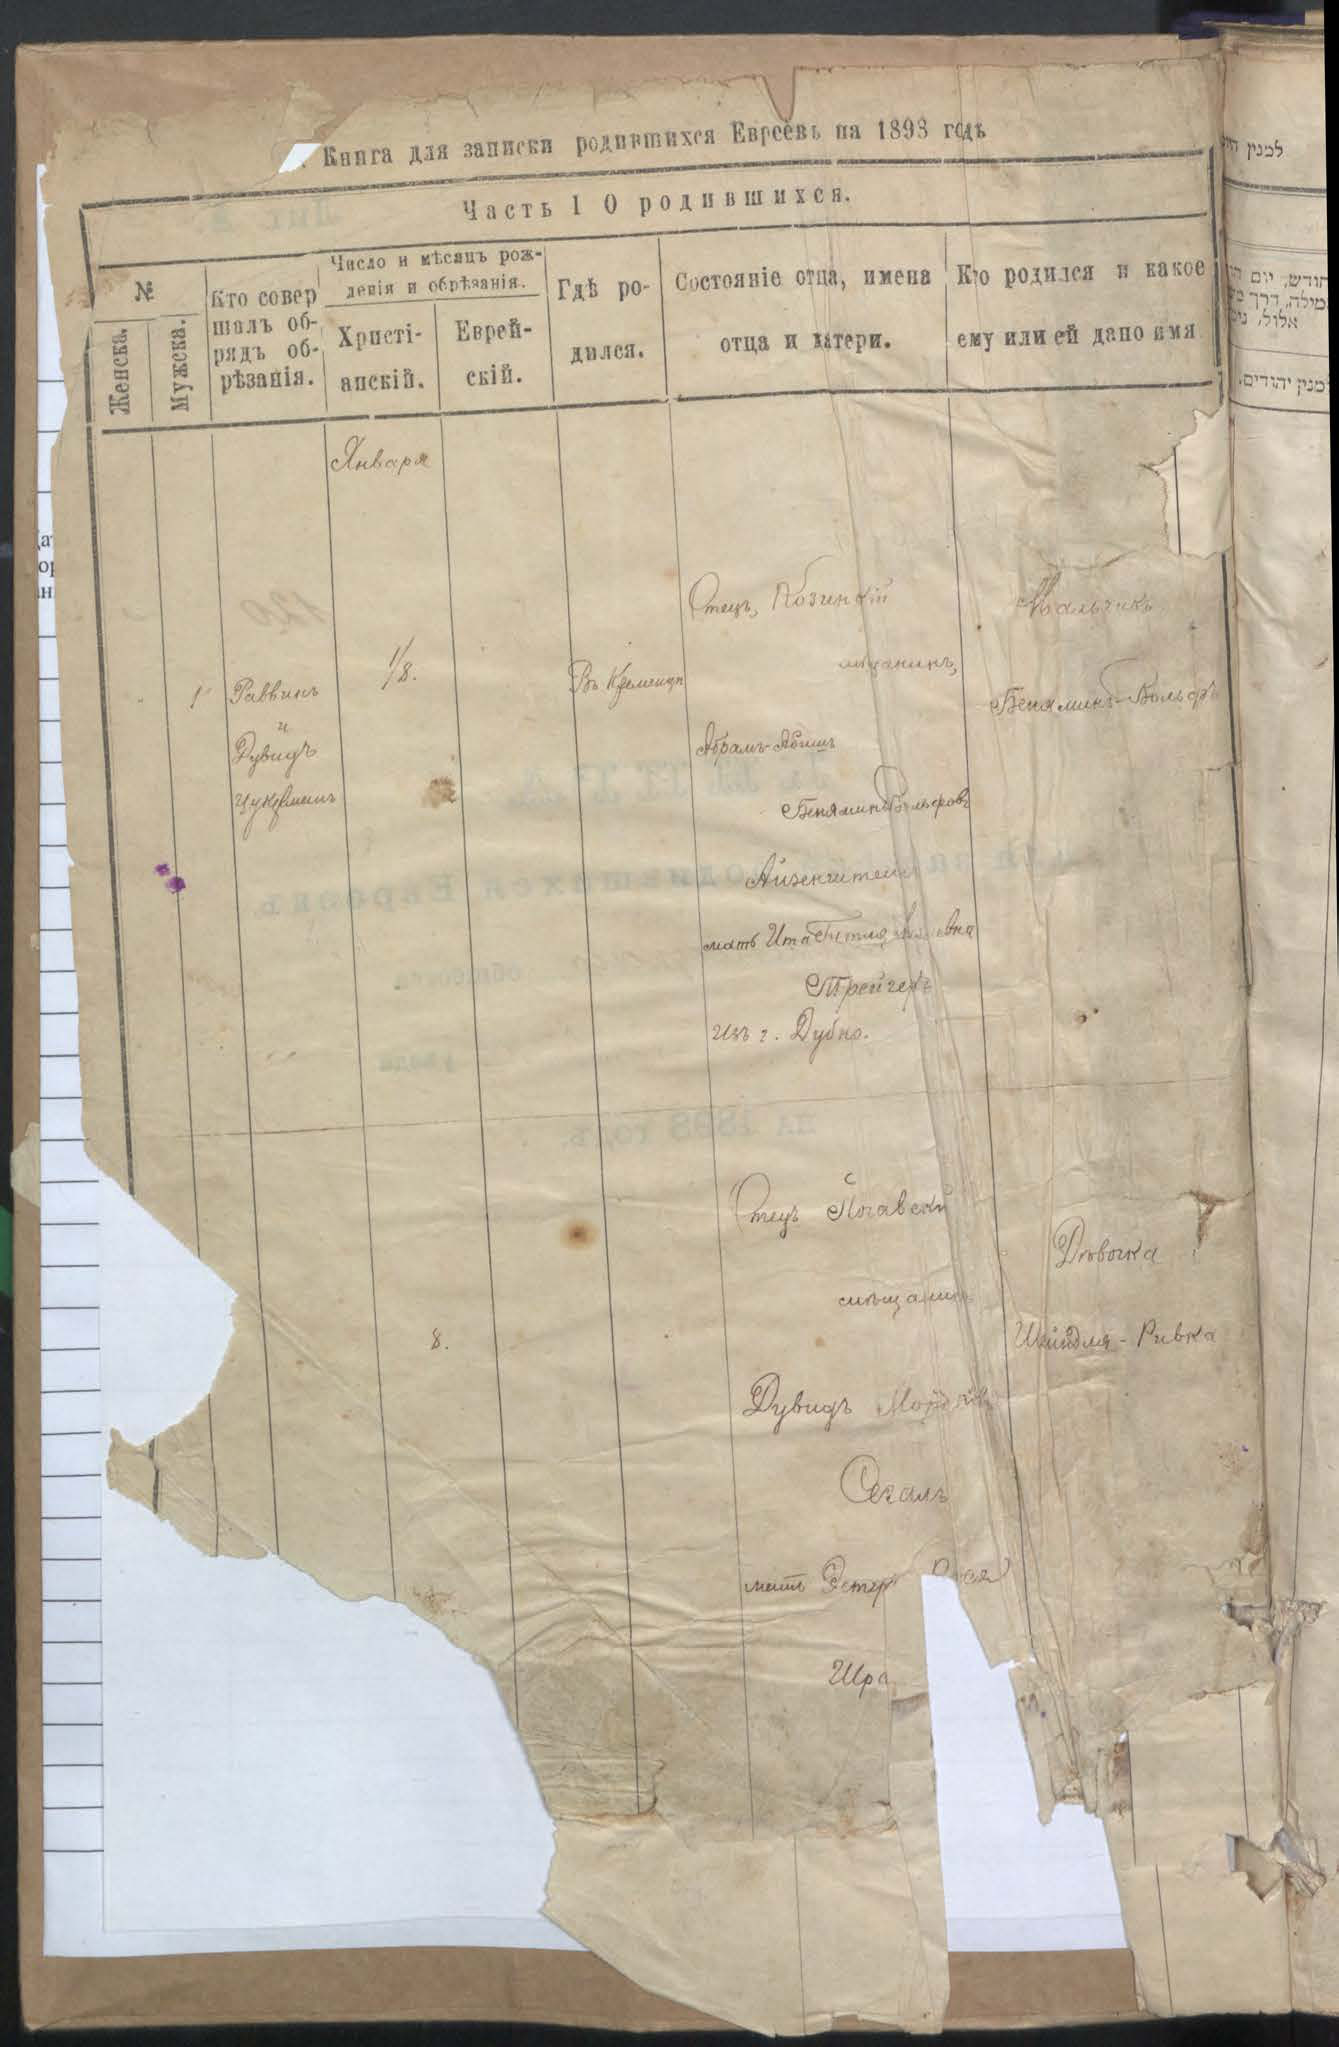 Книга для записки родившихся Евреевъ на 1898 годъ
Часть 1 О родившихся.
№
Женска.
Мужска.
Кто совер
шалъ об-
рядъ об-
рѣзанія.
Число и мѣсяцъ рож-
денія и обрѣзанія.
Христі-
анскій.
Еврей-
скій.
Гдѣ ро-
дился.
Состояніе отца, имена
отца и матери.
Кто родился и какое
ему или ей дано имя
Января
1
Раввинъ
и
Дувидъ
Цукерманъ
1/8.
Въ Кременцѣ
Отецъ, Козинскій
мѣщанинъ,
Абрамъ-Абишъ
Беняминъ-Вольфовъ
Айзенштейнъ
мать Ита Гитля
Трейгеръ
изъ г. Дубно.
Мальчикъ
Беняминъ-Вольфъ
8.
Отецъ Почавскій
мѣщанинъ
Дувидъ
Сегалъ
мать Эстер
Шра
Дѣвочка
Шейндля-Ривка
למנין
חודש, יום
מילה, דרך
אלול,
למנין יהודים.